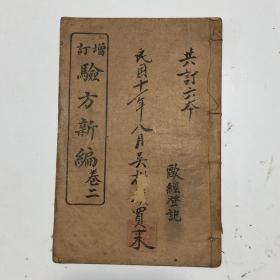 共訂六本
歐經登記
民國十一年八月吳
買来
增訂
驗方新編卷二